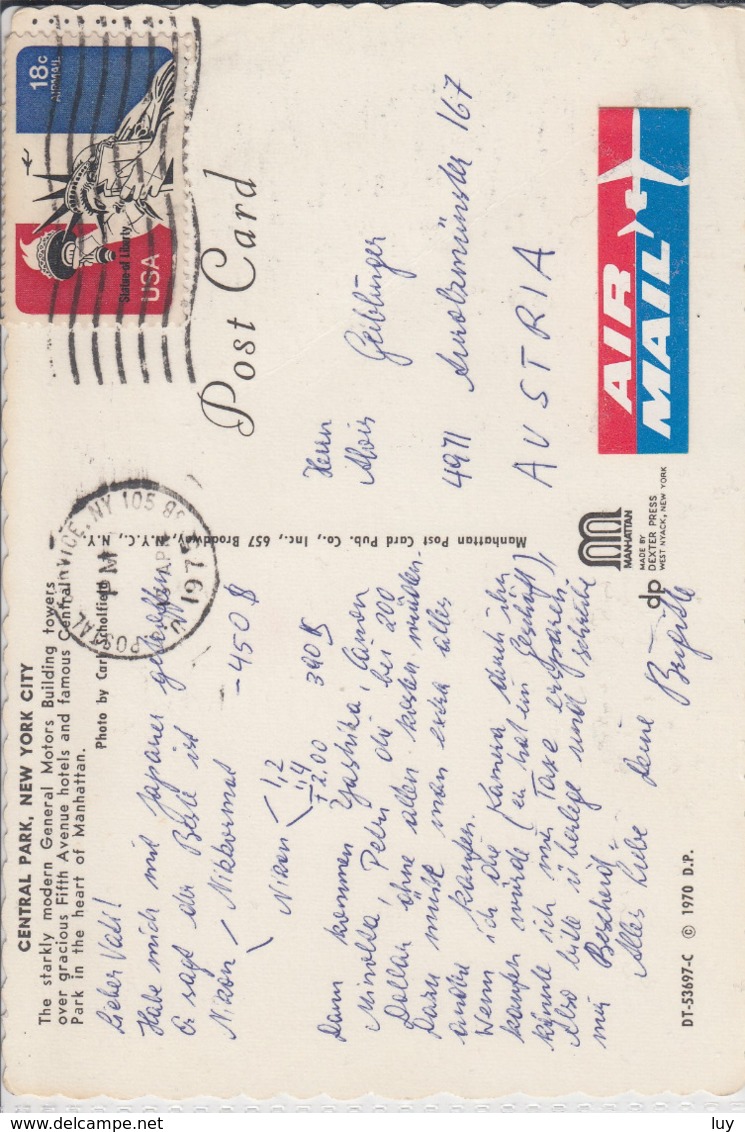 CENTRAL PARK, NEW YORK CITY
The starkly modern General Motors Building towers
over gracious Fifth Avenue hotels and famous Central
Park in the heart of Manhattan.
Photo by Carl Scholfield
Lieber Vati!
Habe mich mit Japaner getroffen
Er sagt der Beste ist
Nikon / Nikkormat - 450 $
Nikon 1,2
1,4
+ 2.00 390 $
Dann kommen Yashika, Canon
Minolta, Petri die bei 200
Dollar ohne allen kosten würden.
Dazu müßt man extra alles
andere kaufen.
Wenn ich die Kamera durch ihn
kaufen würde (er hat ein Geschäft),
könnte ich mir Taxe ersparen.
Also bitte überlege und schreibe
mir Bescheid.
Alles Liebe Deine Brigitte
DT-53697-C © 1970 D.P.
Manhattan Post Card Pub. Co., Inc., 657 Broadway, N.Y.C., N.Y.
MANHATTAN
dp
MADE BY
DEXTER PRESS
WEST NYACK, NEW YORK
Post Card
18c
AIRMAIL
Statue of Liberty
USA
POSTAL SERVICE, NY 105
PM
AP
197
Herrn
Alois Geiblinger
4971 Aurolzmünster 167
AUSTRIA
AIR
MAIL
luy